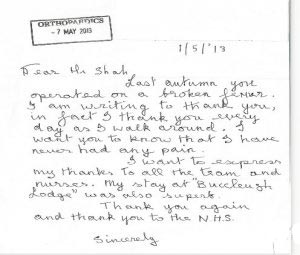 ORTHOPAEDICS
- 7 MAY 2013
1/5/'13
Dear Mr Shah,
Last autumn you
operated on a broken femur.
I am writing to thank you,
in fact I thank you every
day as I walk around. I
want you to know that I have
never had any pain.
I want to express
my thanks to all the team and
nurses. My stay at "Buccleugh
Lodge" was also superb.
Thank you again
and thank you to the N.H.S.
Sincerely